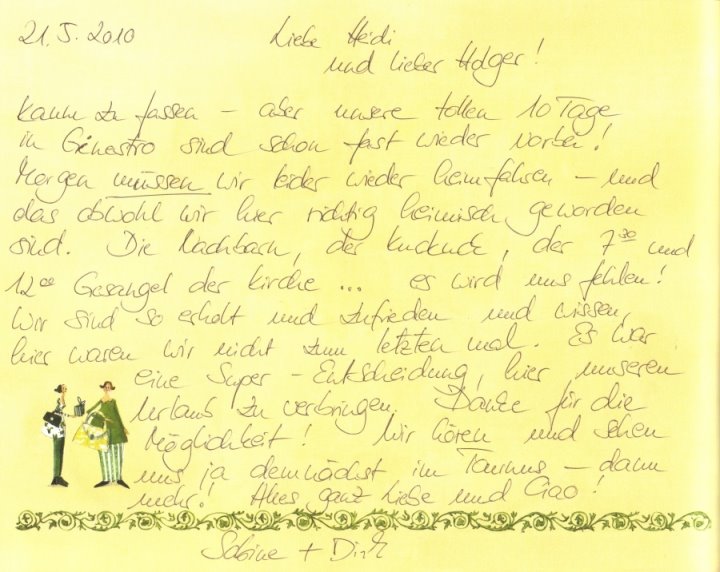 21.5.2010
Liebe Heidi
und lieber Holger!
kaum zu fassen – aber unsere tollen 10 Tage
in Ginestro sind schon fast wieder vorbei!
Morgen müssen wir leider wieder heimfahren – und
das obwohl wir hier richtig heimisch geworden
sind. Die Nachbarn, der Kuckuck, der 7³⁰ und
12⁰⁰ Gesangel der Kirche ... es wird uns fehlen!
Wir sind so erholt und zufrieden und wissen,
hier waren wir nicht zum letzten mal. Es war
eine Super-Entscheidung, hier unseren
Urlaub zu verbringen. Danke für die
Möglichkeit! Wir hören und sehen
uns ja demnächst im Taunus – dann
mehr! Alles ganz Liebe und Ciao!
Sabine + Dirk